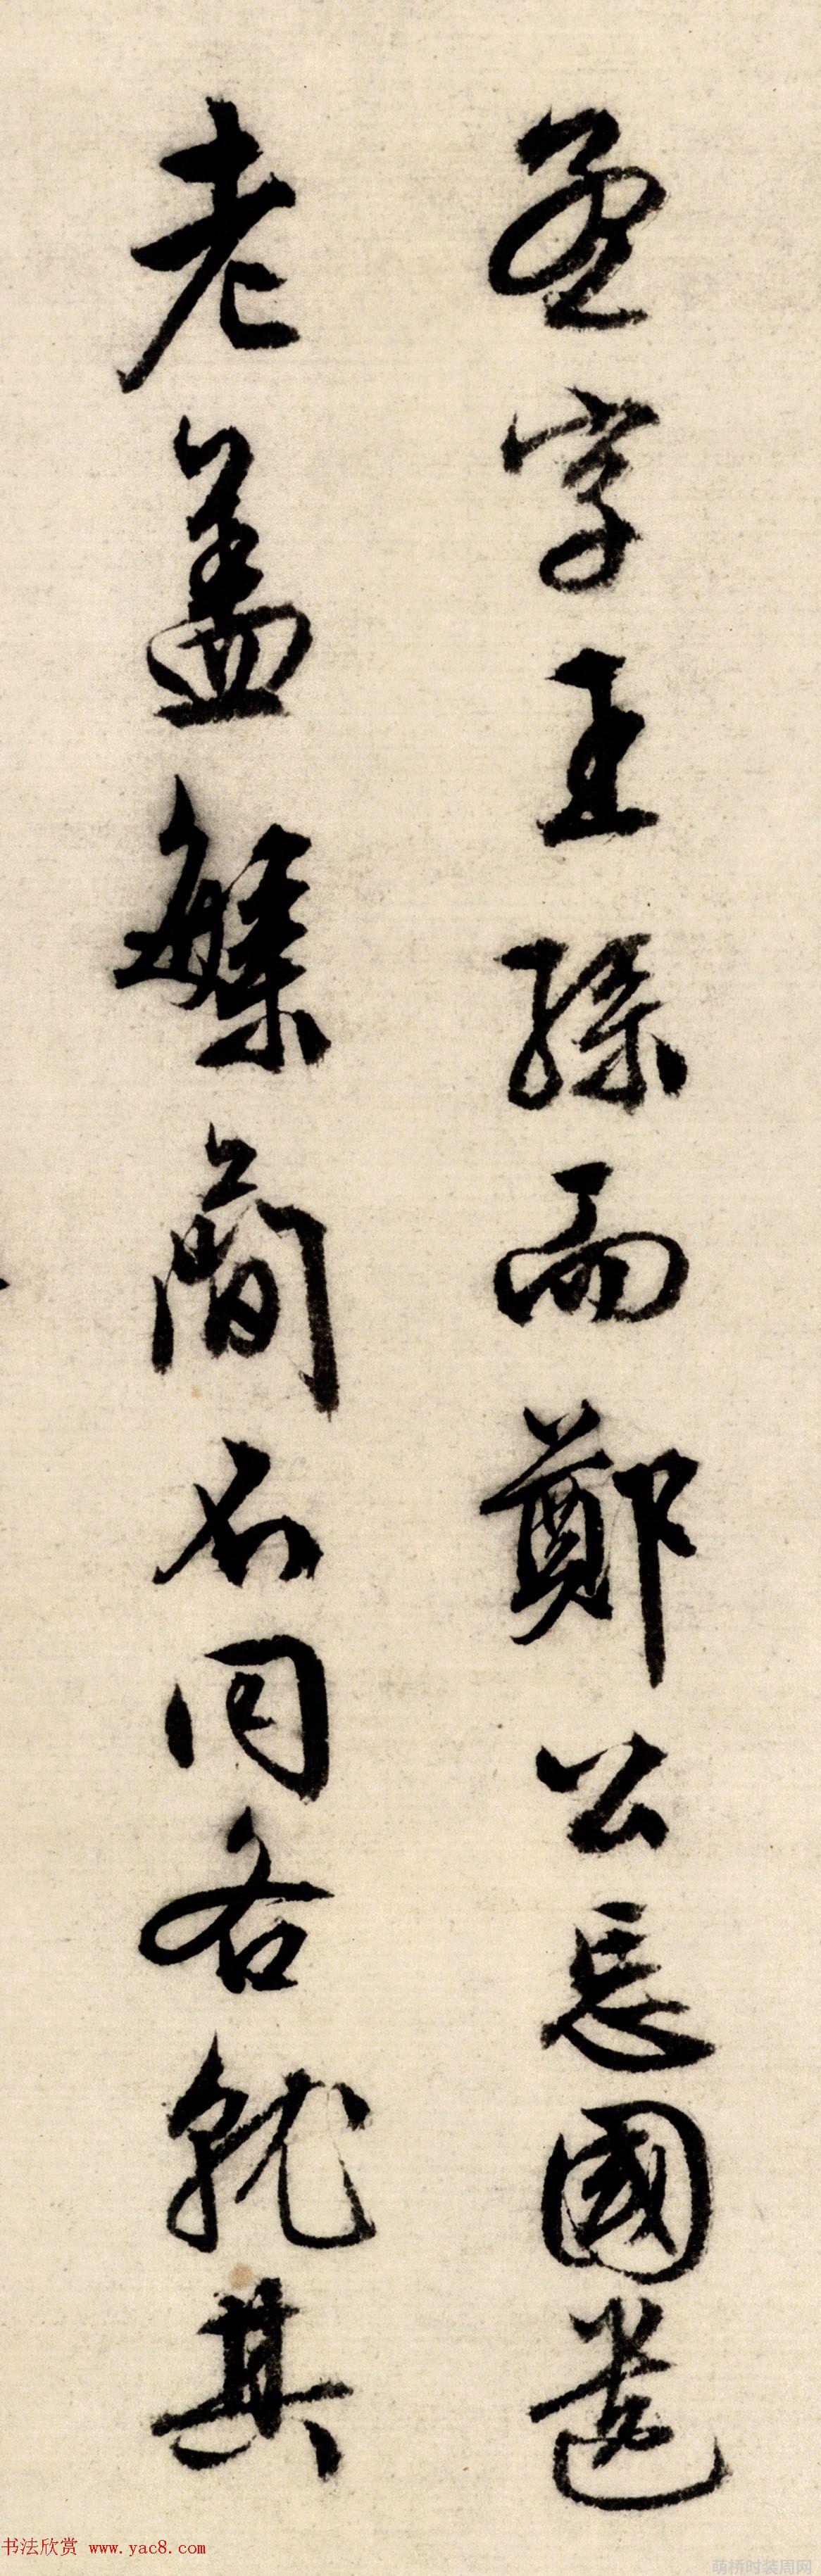 字王孫而鄭公忘國遺
老蓋繁簡不同各就其
书法欣赏 www.yac8.com
萌桥时装周网